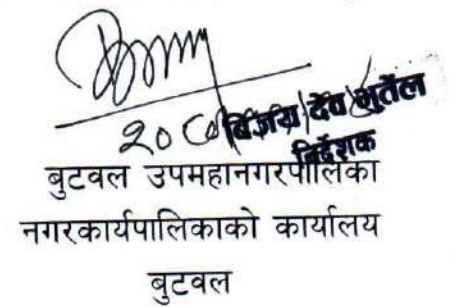 बिजय देव भुर्तेल
निर्देशक
बुटवल उपमहानगरपालिका
नगरकार्यपालिकाको कार्यालय
बुटवल